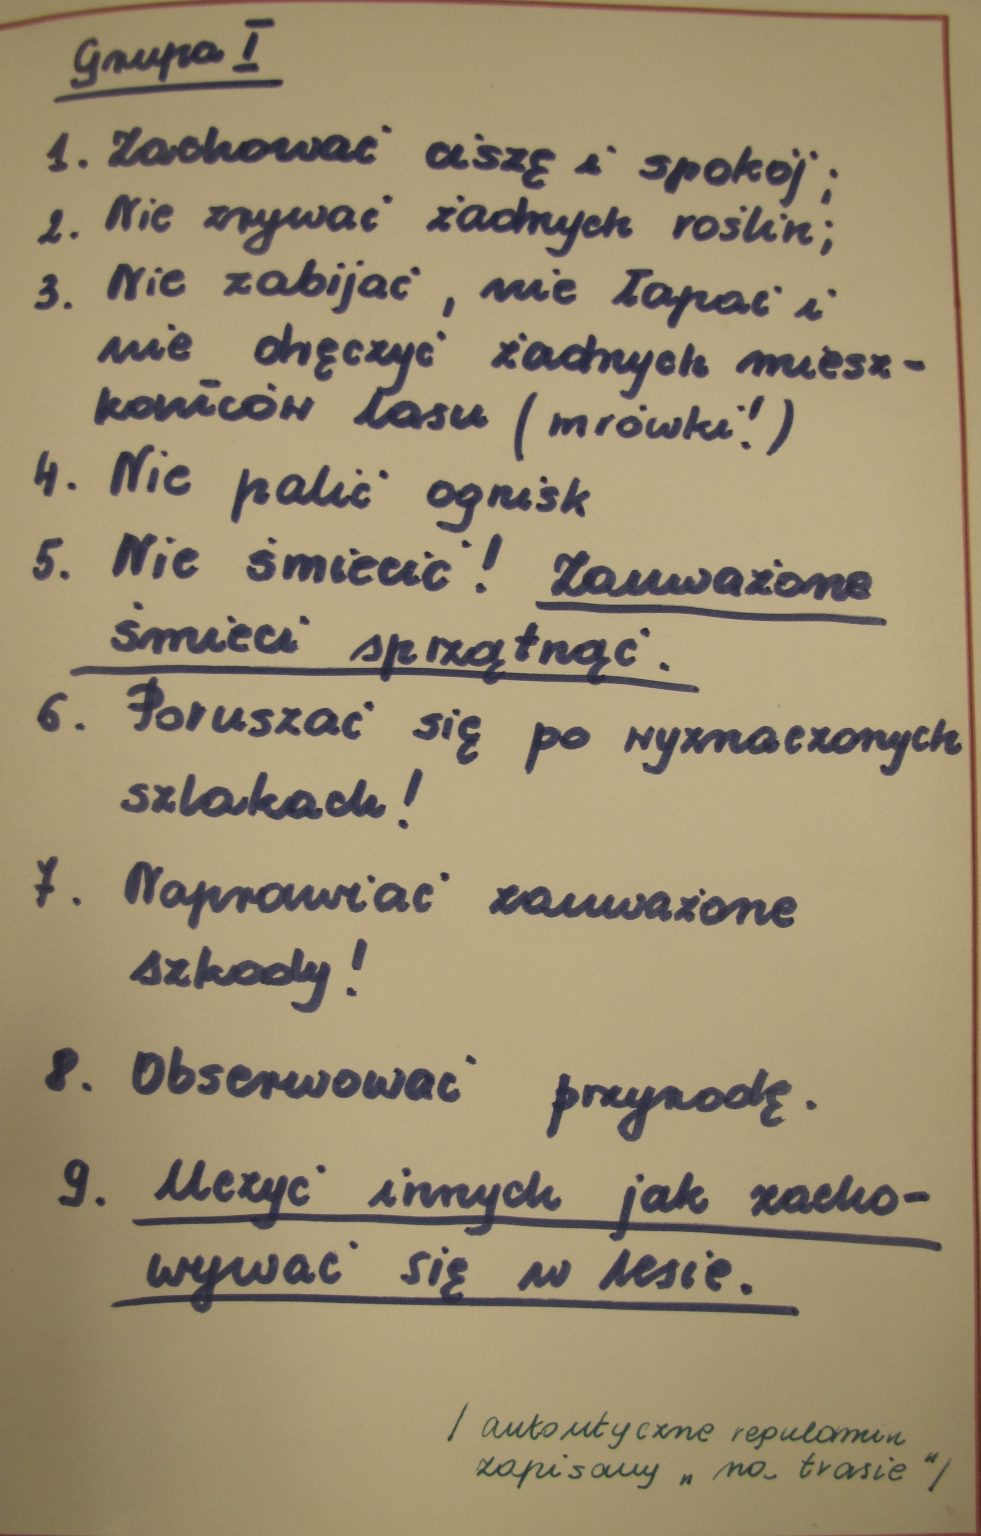 Grupa I
1. Zachować ciszę i spokój;
2. Nie zrywać żadnych roślin;
3. Nie zabijać, nie łapać i
nie dręczyć żadnych miesz-
końców lasu (mrówki!)
4. Nie palić ognisk
5. Nie śmiecić! Zauważone
śmieci sprzątnąć.
6. Poruszać się po wyznaczonych
szlakach!
7. Naprawiać zauważone
szkody!
8. Obserwować przyrodę.
9. Uczyć innych jak zacho-
wywać się w lesie.
/ autentyczne regulamin
zapisany „na trasie"/